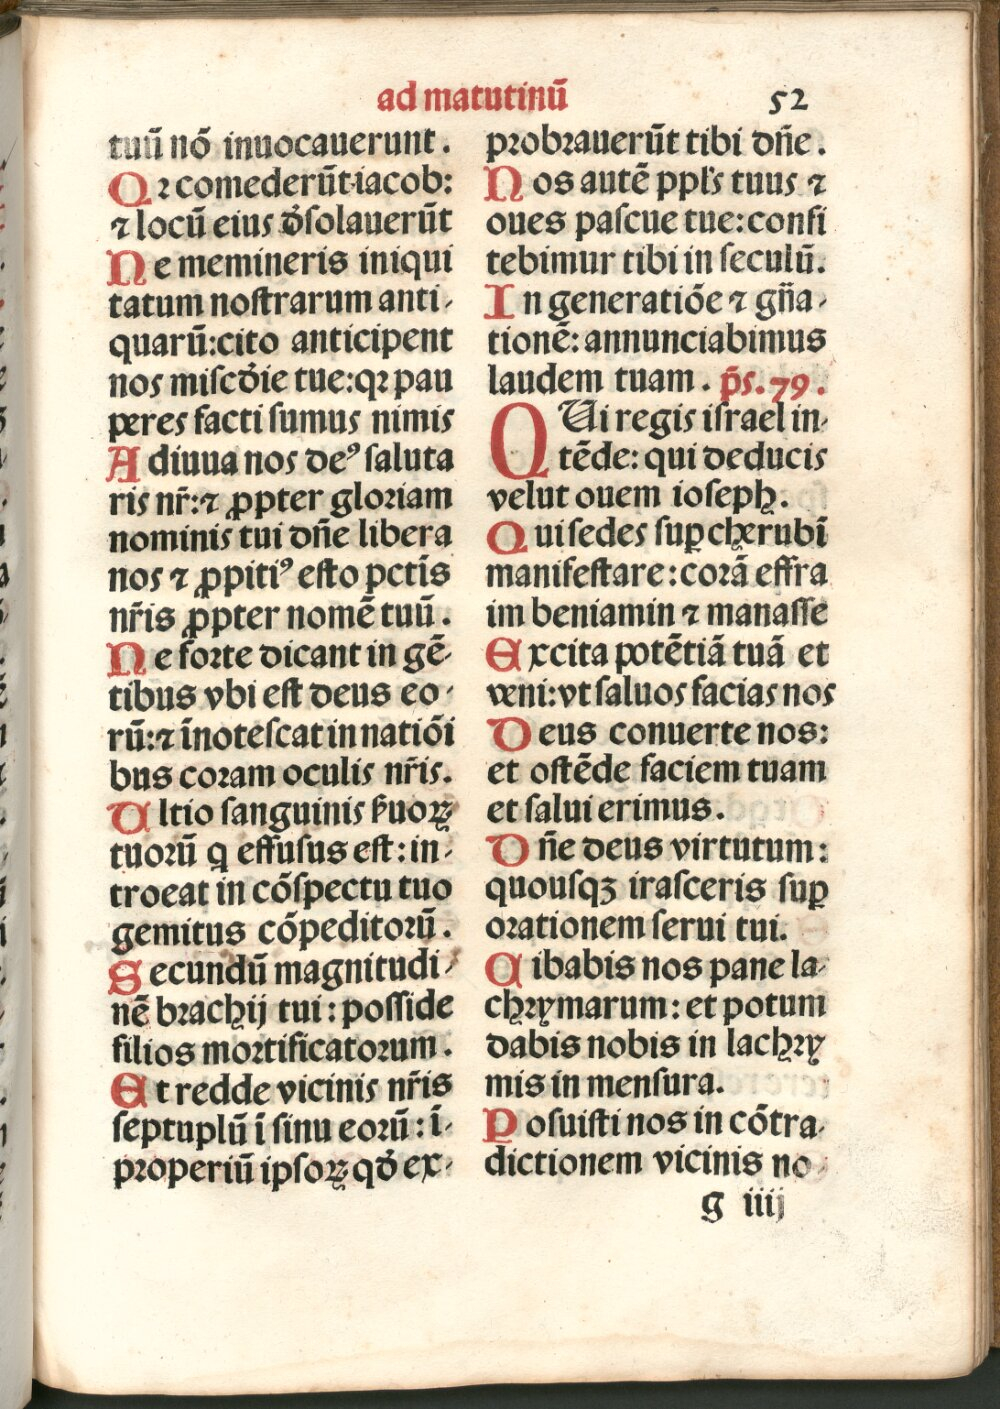 ad matutinū 52
tuū nō inuocauerunt.
Qꝛ comederūt iacob:
⁊ locū eius d̄solauerūt
Ne memineris iniqui
tatum nostrarum anti-
quarū: cito anticipent
nos misc̄die tue: qꝛ pau
peres facti sumus nimis
Adiuua nos deꝰ saluta
ris nr̄: ⁊ ꝓpter gloriam
nominis tui dñe libera
nos ⁊ ꝓpitiꝰ esto pctīs
nr̄is ꝓpter nomē tuū.
Ne forte dicant in gē-
tibus vbi est deus eo-
rū: ⁊ īnotescat in natiōi
bus coram oculis nr̄is.
Vltio sanguinis ẜuoꝝ
tuorū q̄ effusus est: in-
troeat in cōspectu tuo
gemitus cōpeditorū.
Secundū magnitudi-
nē brachij tui: posside
filios mortificatorum.
Et redde vicinis nr̄is
septuplū ī sinu eorū: ī-
properiū ipsoꝝ qd̄ ex-
probrauerūt tibi dñe.
Nos autē ppl's tuus ⁊
oues pascue tue: confi
tebimur tibi in seculū.
In generatiōe ⁊ gña-
tionē: annunciabimus
laudem tuam. p̄s. 79.
QVi regis israel in-
tēde: qui deducis
velut ouem ioseph.
Qui sedes suꝑ cherubī
manifestare: corā effra
im beniamin ⁊ manasse
Excita potētiā tuā et
veni: vt saluos facias nos
Deus conuerte nos:
et ostēde faciem tuam
et salui erimus.
Dñe deus virtutum:
quousqꝫ irasceris suꝑ
orationem serui tui.
Cibabis nos pane la-
chrymarum: et potum
dabis nobis in lachry
mis in mensura.
Posuisti nos in cōtra-
dictionem vicinis no-
g iiij